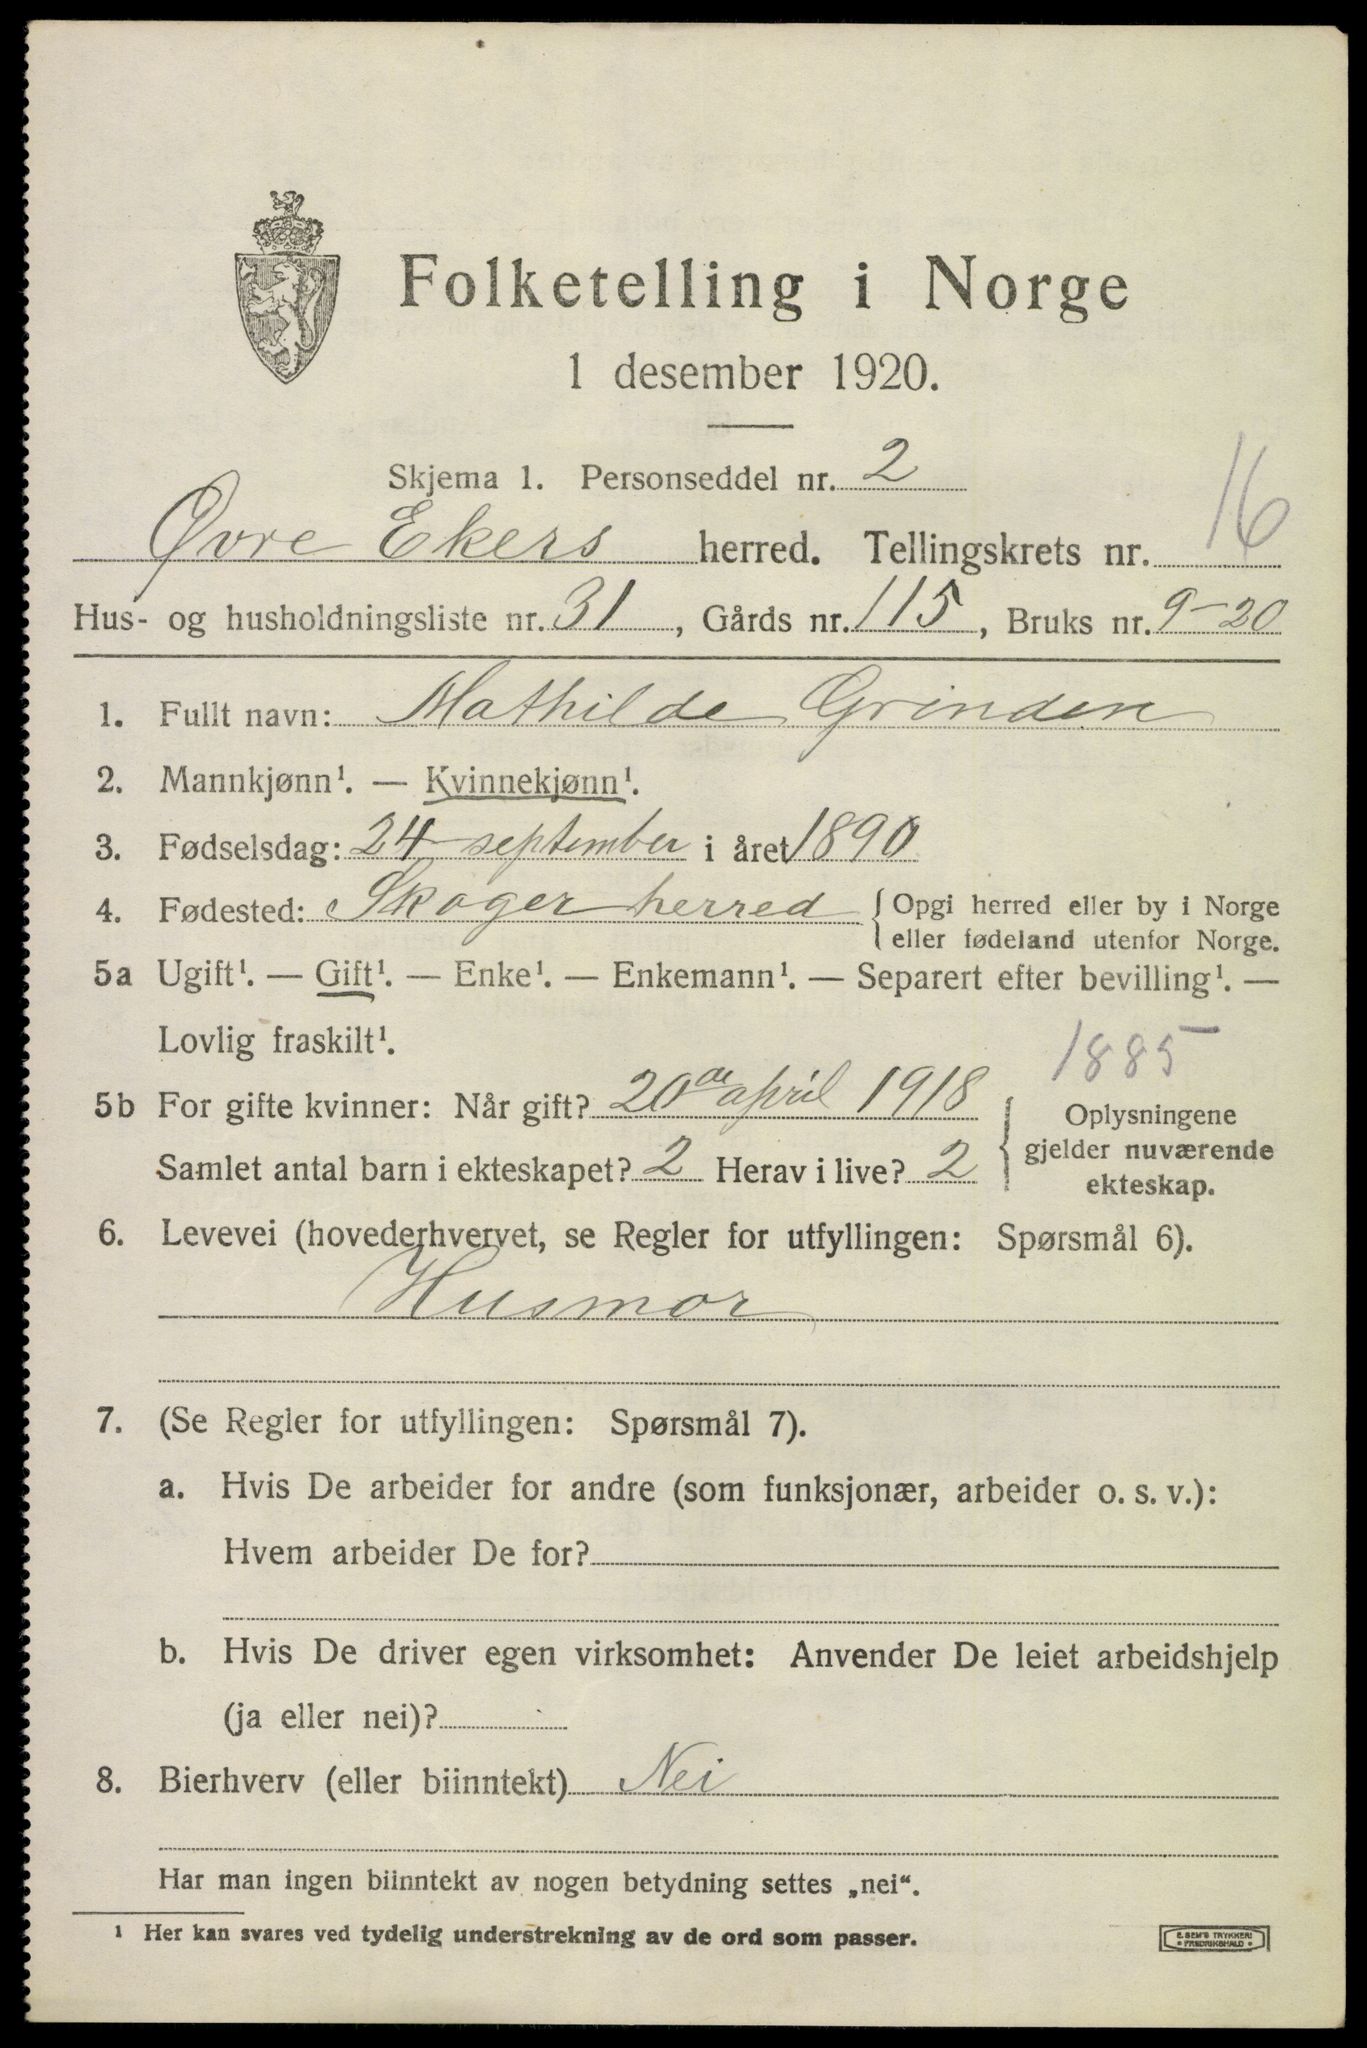 Folketelling i Norge
1 desember 1920.
Skjema 1. Personseddel nr. 2
Øvre Ekers herred. Tellingskrets nr. 16
Hus- og husholdningsliste nr. 31, Gårds nr. 115, Bruks nr. 9-20
1. Fullt navn: Mathilde Grinden
2. Mannkjønn¹. — Kvinnekjønn¹.
3. Fødselsdag: 24 september i året 1890
4. Fødested: Skoger herred { Opgi herred eller by i Norge
eller fødeland utenfor Norge.
5a Ugift¹. — Gift¹. — Enke¹. — Enkemann¹. — Separert efter bevilling¹. —
Lovlig fraskilt¹.
1885
5b For gifte kvinner: Når gift? 20de april 1918
Samlet antal barn i ekteskapet? 2 Herav i live? 2
{ Oplysningene
gjelder nuværende
ekteskap.
6. Levevei (hovederhvervet, se Regler for utfyllingen: Spørsmål 6).
Husmor
7. (Se Regler for utfyllingen: Spørsmål 7).
a. Hvis De arbeider for andre (som funksjonær, arbeider o. s. v.):
Hvem arbeider De for?
b. Hvis De driver egen virksomhet: Anvender De leiet arbeidshjelp
(ja eller nei)?
8. Bierhverv (eller biinntekt) Nei
Har man ingen biinntekt av nogen betydning settes „nei“.
¹ Her kan svares ved tydelig understrekning av de ord som passer.
E. SEM'S TRYKKERI
• FREDRIKSHALD •